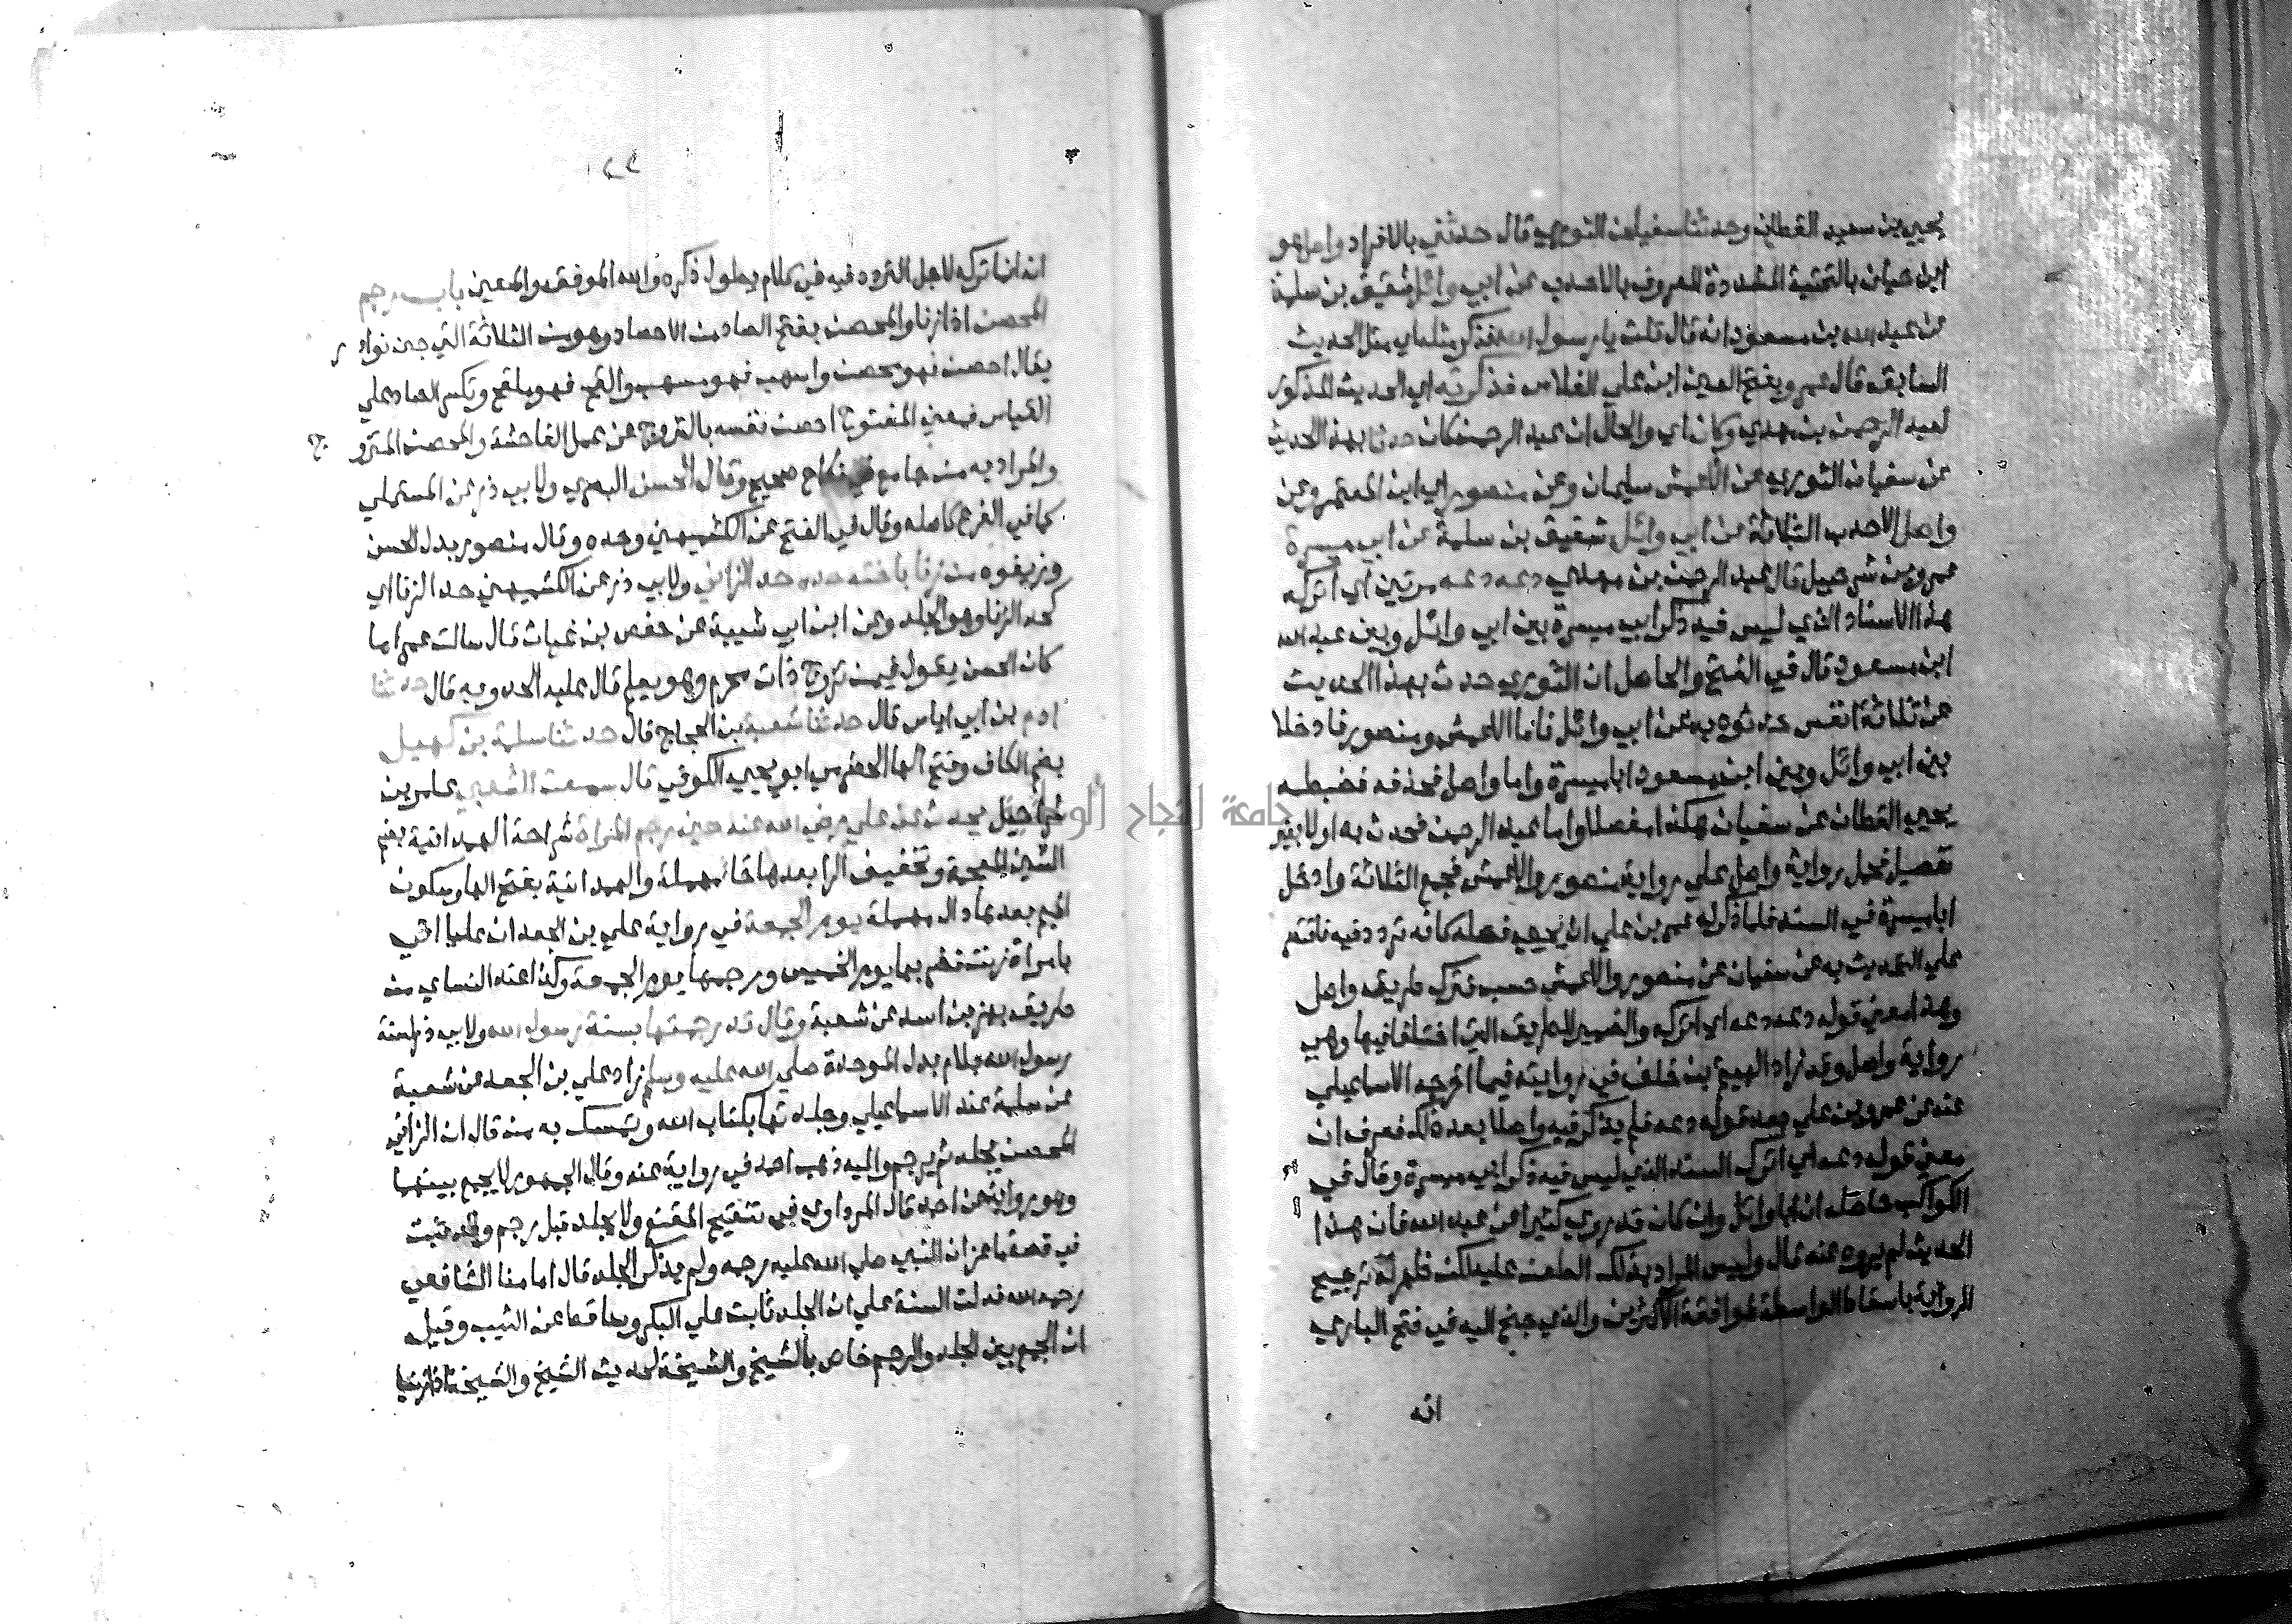 يحيي بن سعيد القطان وحدثنا سفيان الثوري قال حدثني بالافراد واصل هو
ابن حيان بالتحتية المشددة المعروف بالاحدب عن ابي وائل شقيق بن سلمة
عن عبد الله بن مسعود انه قال قلت يا رسول الله فذكر مثله اي مثل الحديث
السابق قال عمرو بفتح العين ابن علي الفلاس فذكرته اي الحديث المذكور
لعبد الرحمن بن مهدي وكان اي والحال ان عبد الرحمن كان حدثنا بهذا الحديث
عن سفيان الثوري عن الاعمش سليمان وعن منصور اي ابن المعتمر وعن
واصل الاحدب الثلاثة عن ابي وائل شقيق بن سلمة عن ابي ميسرة
عمرو بن شرحبيل قال عبد الرحمن بن مهدي دعه دعه مرتين اي اتركه
هذا الاسناد الذي ليس فيه ذكر ابي ميسرة بين ابي وائل وبين عبد الله
ابن مسعود قال في الفتح والحاصل ان الثوري حدث بهذا الحديث
عن ثلاثة انفس حدثوه به عن ابي وائل فاما الاعمش ومنصور فادخلا
بين ابي وائل وبين ابن مسعود ابا ميسرة واما واصل فحذفه فضبطه
يحيي القطان عن سفيان هكذا مفصلا واما عبد الرحمن فحدث به اولا بغير
تفصيل فحمل رواية واصل علي رواية منصور والاعمش فجمع الثلاثة وادخل
ابا ميسرة في السند فلما ذكر له عمرو بن علي ان يحيي فصله كانه تردد فيه فاقتصر
علي التحديث به عن سفيان عن منصور والاعمش حسب وترك طريق واصل
وهذا معني قوله دعه دعه اي اتركه والضمير للطريق التي اختلفا فيها وهي
رواية واصل وقد زاد الهيثم بن خلف في روايته فيما اخرجه الاسماعيلي
عنه عن عمرو بن علي بعد قوله دعه فلم يذكر فيه واصلا بعد ذلك فعرف ان
معني قوله دعه اي اترك السند الذي ليس فيه ذكر ابي ميسرة وقال في
الكواكب حاصله ان ابا وائل وان كان قد روي كثيرا عن عبد الله فان هذا
الحديث لم يروه عنه قال وليس المراد بذلك الطعن عليه لكن ظهر له ترجيح
الرواية باسقاط الواسطة لموافقة الاكثرين والذي جنح اليه في فتح الباري
انه
١٢٢
انه انما تركه لاجل التردد فيه في كلام يطول ذكره والله الموفق والمعين باب رجم
المحصن اذا زنا والمحصن بفتح الصاد من الاحصاد وهو من الثلاثة التي جين نوادر
يقال احصن فهو محصن واسهب فهو مسهب والقح فهو ملقح وتكسر الصاد علي
القياس فمعني المفتوح احصن نفسه بالتزوج عن عمل الفاحشة والمحصن المتزوج
والمراد به من جامع في نكاح صحيح وقال الحسن البصري ولابي ذر عن المستملي
كما في الفرع كاصله وقال في الفتح عن الكشميهني وحده وقال منصور بدل الحسن
وزيفوه من زنا باخته حده حد الزاني ولابي ذر عن الكشميهني حد الزنا اي
كحد الزنا وهو الجلد وعن ابن ابي شيبة عن حفص بن غياث قال سالت عمرا ما
كان الحسن يقول فيمن تزوج ذات محرم وهو يعلم قال عليه الحد وبه قال حدثنا
ادم بن ابي اياس قال حدثنا شعبة بن الحجاج قال حدثنا سلمة بن كهيل
بضم الكاف وفتح الها الحضرمي ابو يحيي الكوفي قال سمعت الشعبي عامر بن
شراحيل يحدث عن علي رضي الله عنه حين رجم المراة شراحة الهمدانية بضم
الشين المعجمة وتخفيف الرا بعدها حا مهملة والهمدانية بفتح الها وسكون
الميم بعدها دال مهملة يوم الجمعة في رواية علي بن الجعد ان عليا اتي
بامراة زنت فضربها يوم الخميس ورجمها يوم الجمعة وكذا عند النساي من
طريق بهز بن اسد عن شعبة وقال قد رجمتها بسنة رسول الله ولابي ذر لسنة
رسول الله بلام بدل الموحدة صلي الله عليه وسلم زاد علي بن الجعد عن شعبة
عن سلمة عند الاسماعيلي وجلدتها بكتاب الله وتمسك به من قال ان الزاني
المحصن يجلد ثم يرجم واليه ذهب احمد في رواية عنه وقال الجمهور لا يجمع بينهما
وهو رواية عن احمد قال المرداوي في تنقيح المقنع ولا يجلد قبل رجم وقد ثبت
في قصة ماعز ان النبي صلي الله عليه رجمه ولم يذكر الجلد قال امامنا الشافعي
رحمه الله فدلت السنة علي ان الجلد ثابت علي البكر وساقط عن الثيب وقيل
ان الجمع بين الجلد والرجم خاص بالشيخ والشيخة لحديث الشيخ والشيخة اذا زنيا
جامعة النجاح